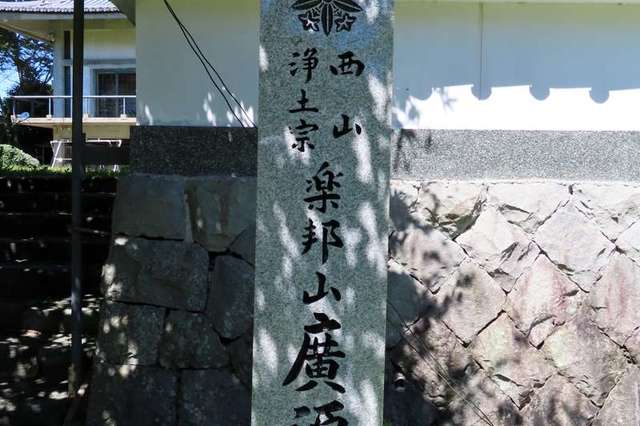 西山
浄土宗
楽邦山廣